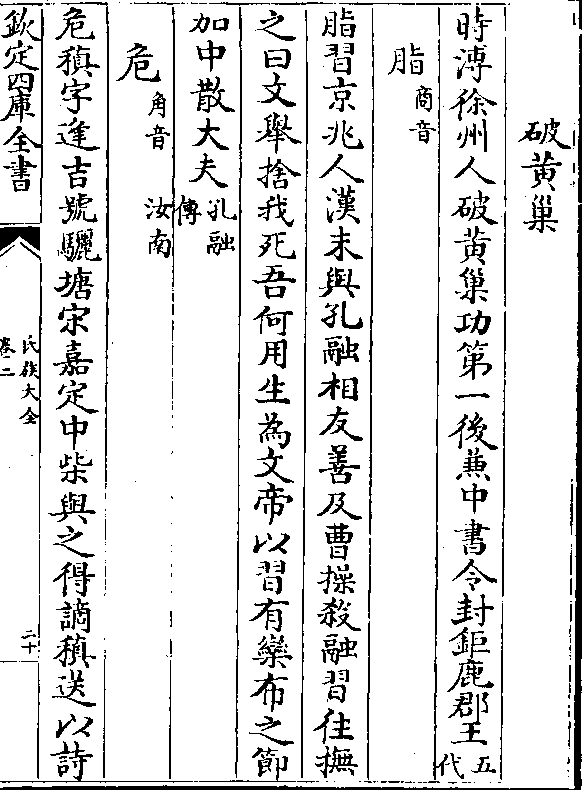 破黃巢
時溥徐州人破黃巢功第一後兼中書令封鉅鹿郡王五代
脂商音
脂習京兆人漢末與孔融相友善及曹操殺融習往撫
之曰文舉捨我死吾何用生為文帝以習有欒布之節
加中散大夫孔融傳
危角音汝南
危稹字逢吉號驪塘宋嘉定中柴與之得謫稹送以詩
欽定四庫全書
氏族大全
卷二
二十